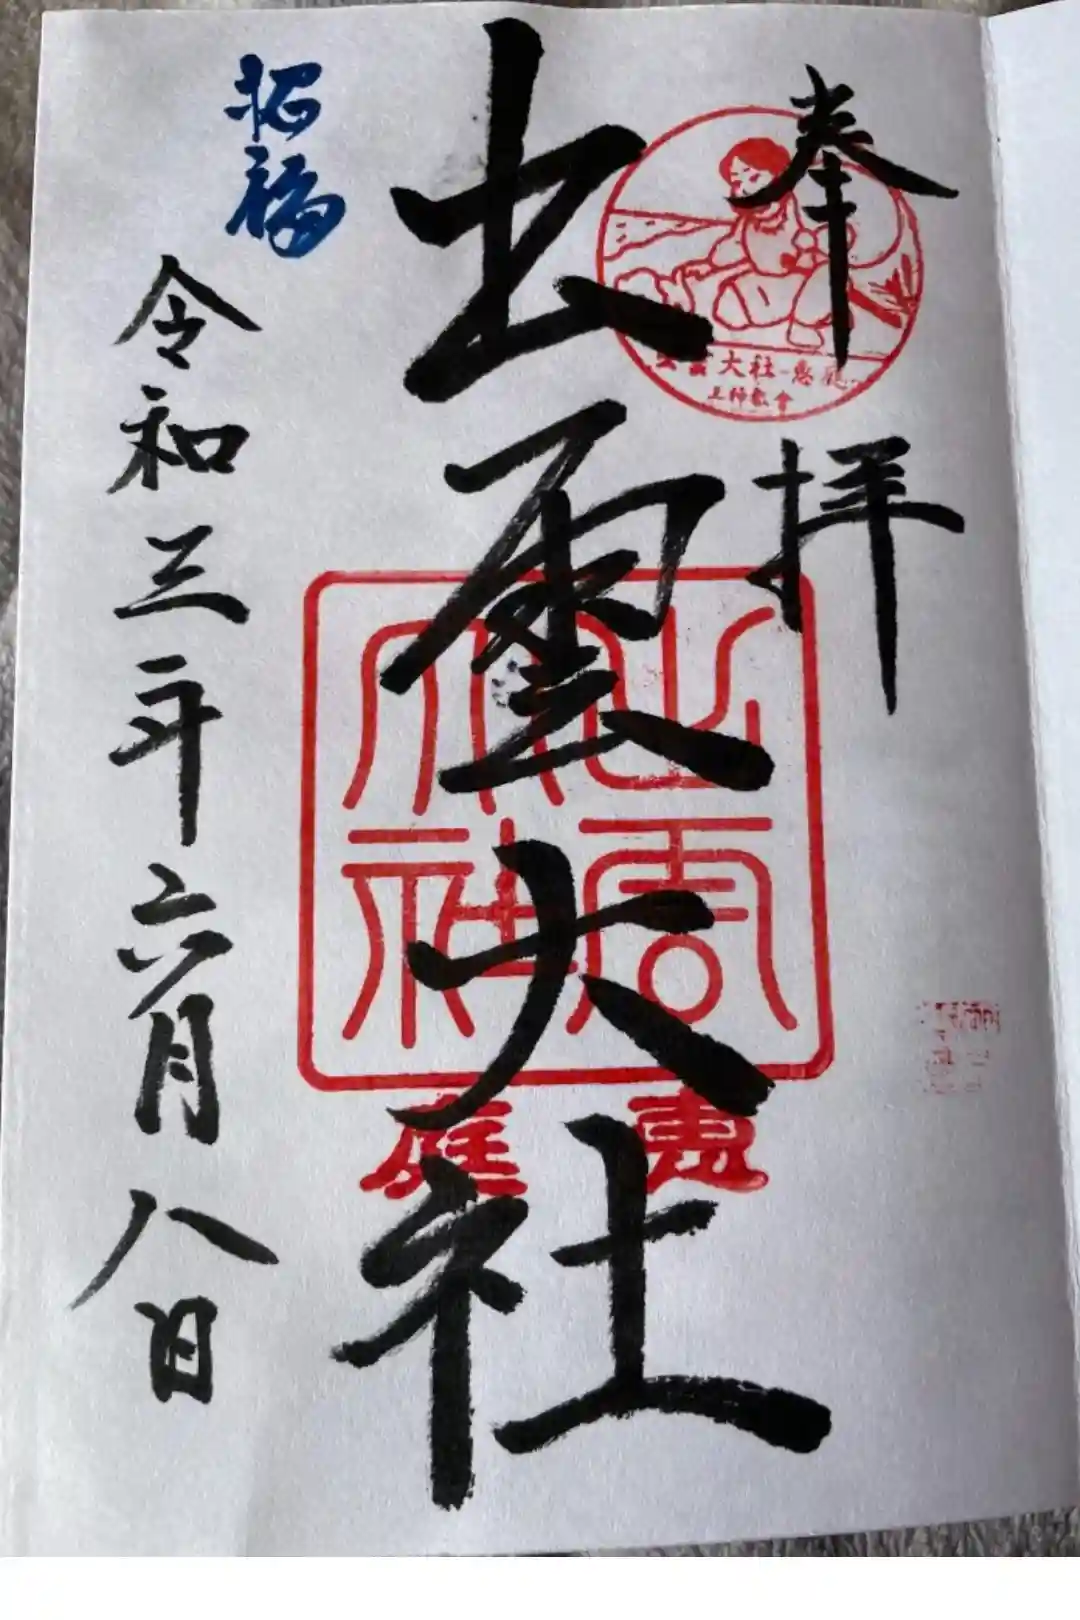 奉拝
出雲大社
招福
令和三年六月八日
出雲大社
恵庭
出雲大社-恵庭
教會